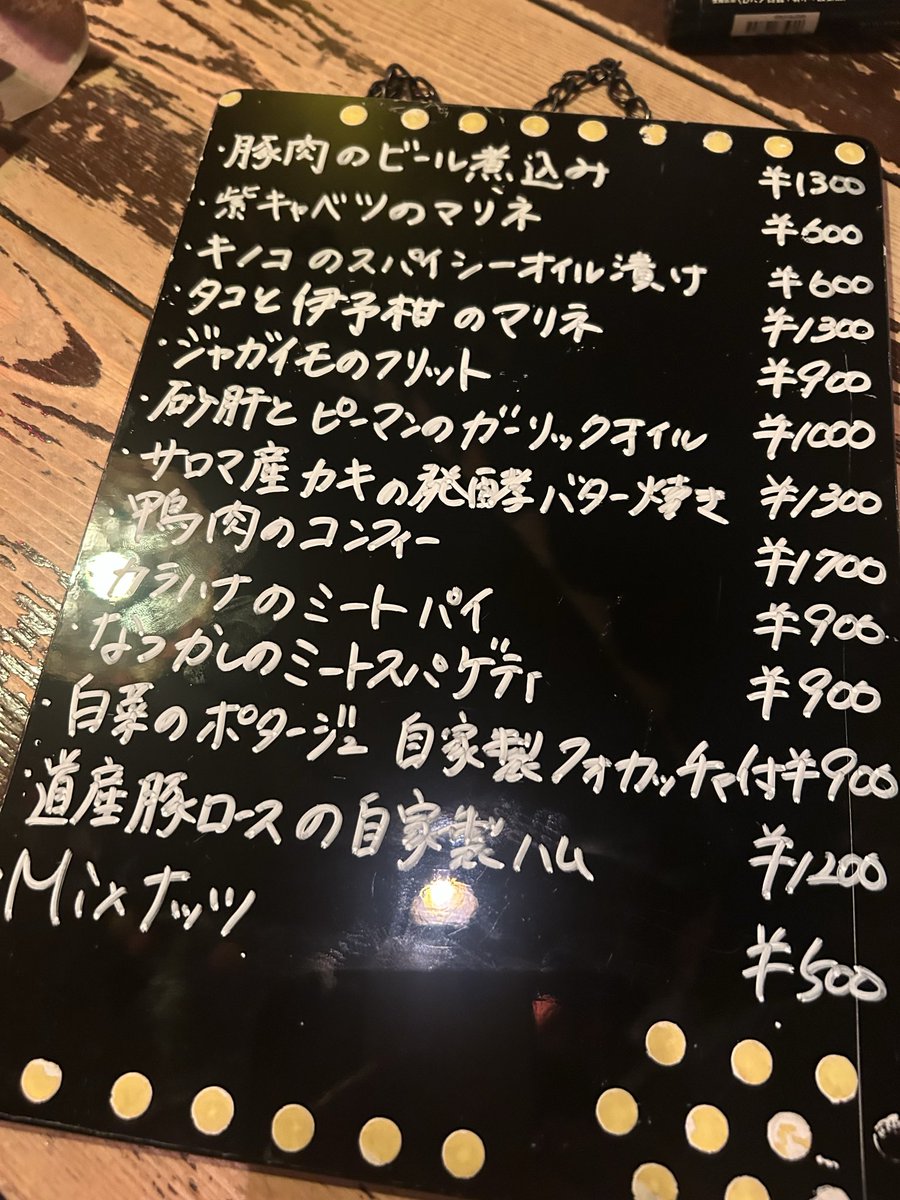 ・豚肉のビール煮込み ¥1300
・紫キャベツのマリネ ¥600
・キノコのスパイシーオイル漬け ¥600
・タコと伊予柑のマリネ ¥1300
・ジャガイモのフリット ¥900
・砂肝とピーマンのガーリックオイル ¥1000
・サロマ産カキの発酵バター焼き ¥1300
・鴨肉のコンフィー ¥1700
・カラハナのミートパイ ¥900
・なつかしのミートスパゲティ ¥900
・白菜のポタージュ 自家製フォカッチャ付¥900
・道産豚ロースの自家製ハム ¥1200
・Mixナッツ ¥500